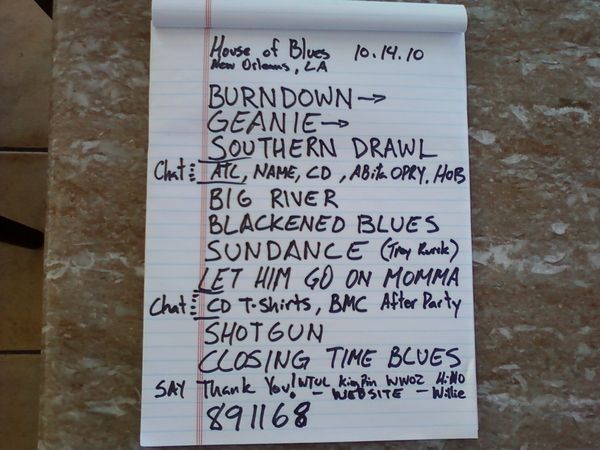 House of Blues 10.14.10
New Orleans, LA
BURNDOWN →
GEANIE →
SOUTHERN DRAWL
Chat: ATL, NAME, CD, ABita OPRY, HOB
BIG RIVER
BLACKENED BLUES
SUNDANCE (Troy
LET HIM GO ON MOMMA
Chat: CD T-Shirts, BMC After Party
SHOTGUN
CLOSING TIME BLUES
SAY Thank You! WTUL KingPin WWOZ Hi-Ho
- WEBSITE - Willie
891168